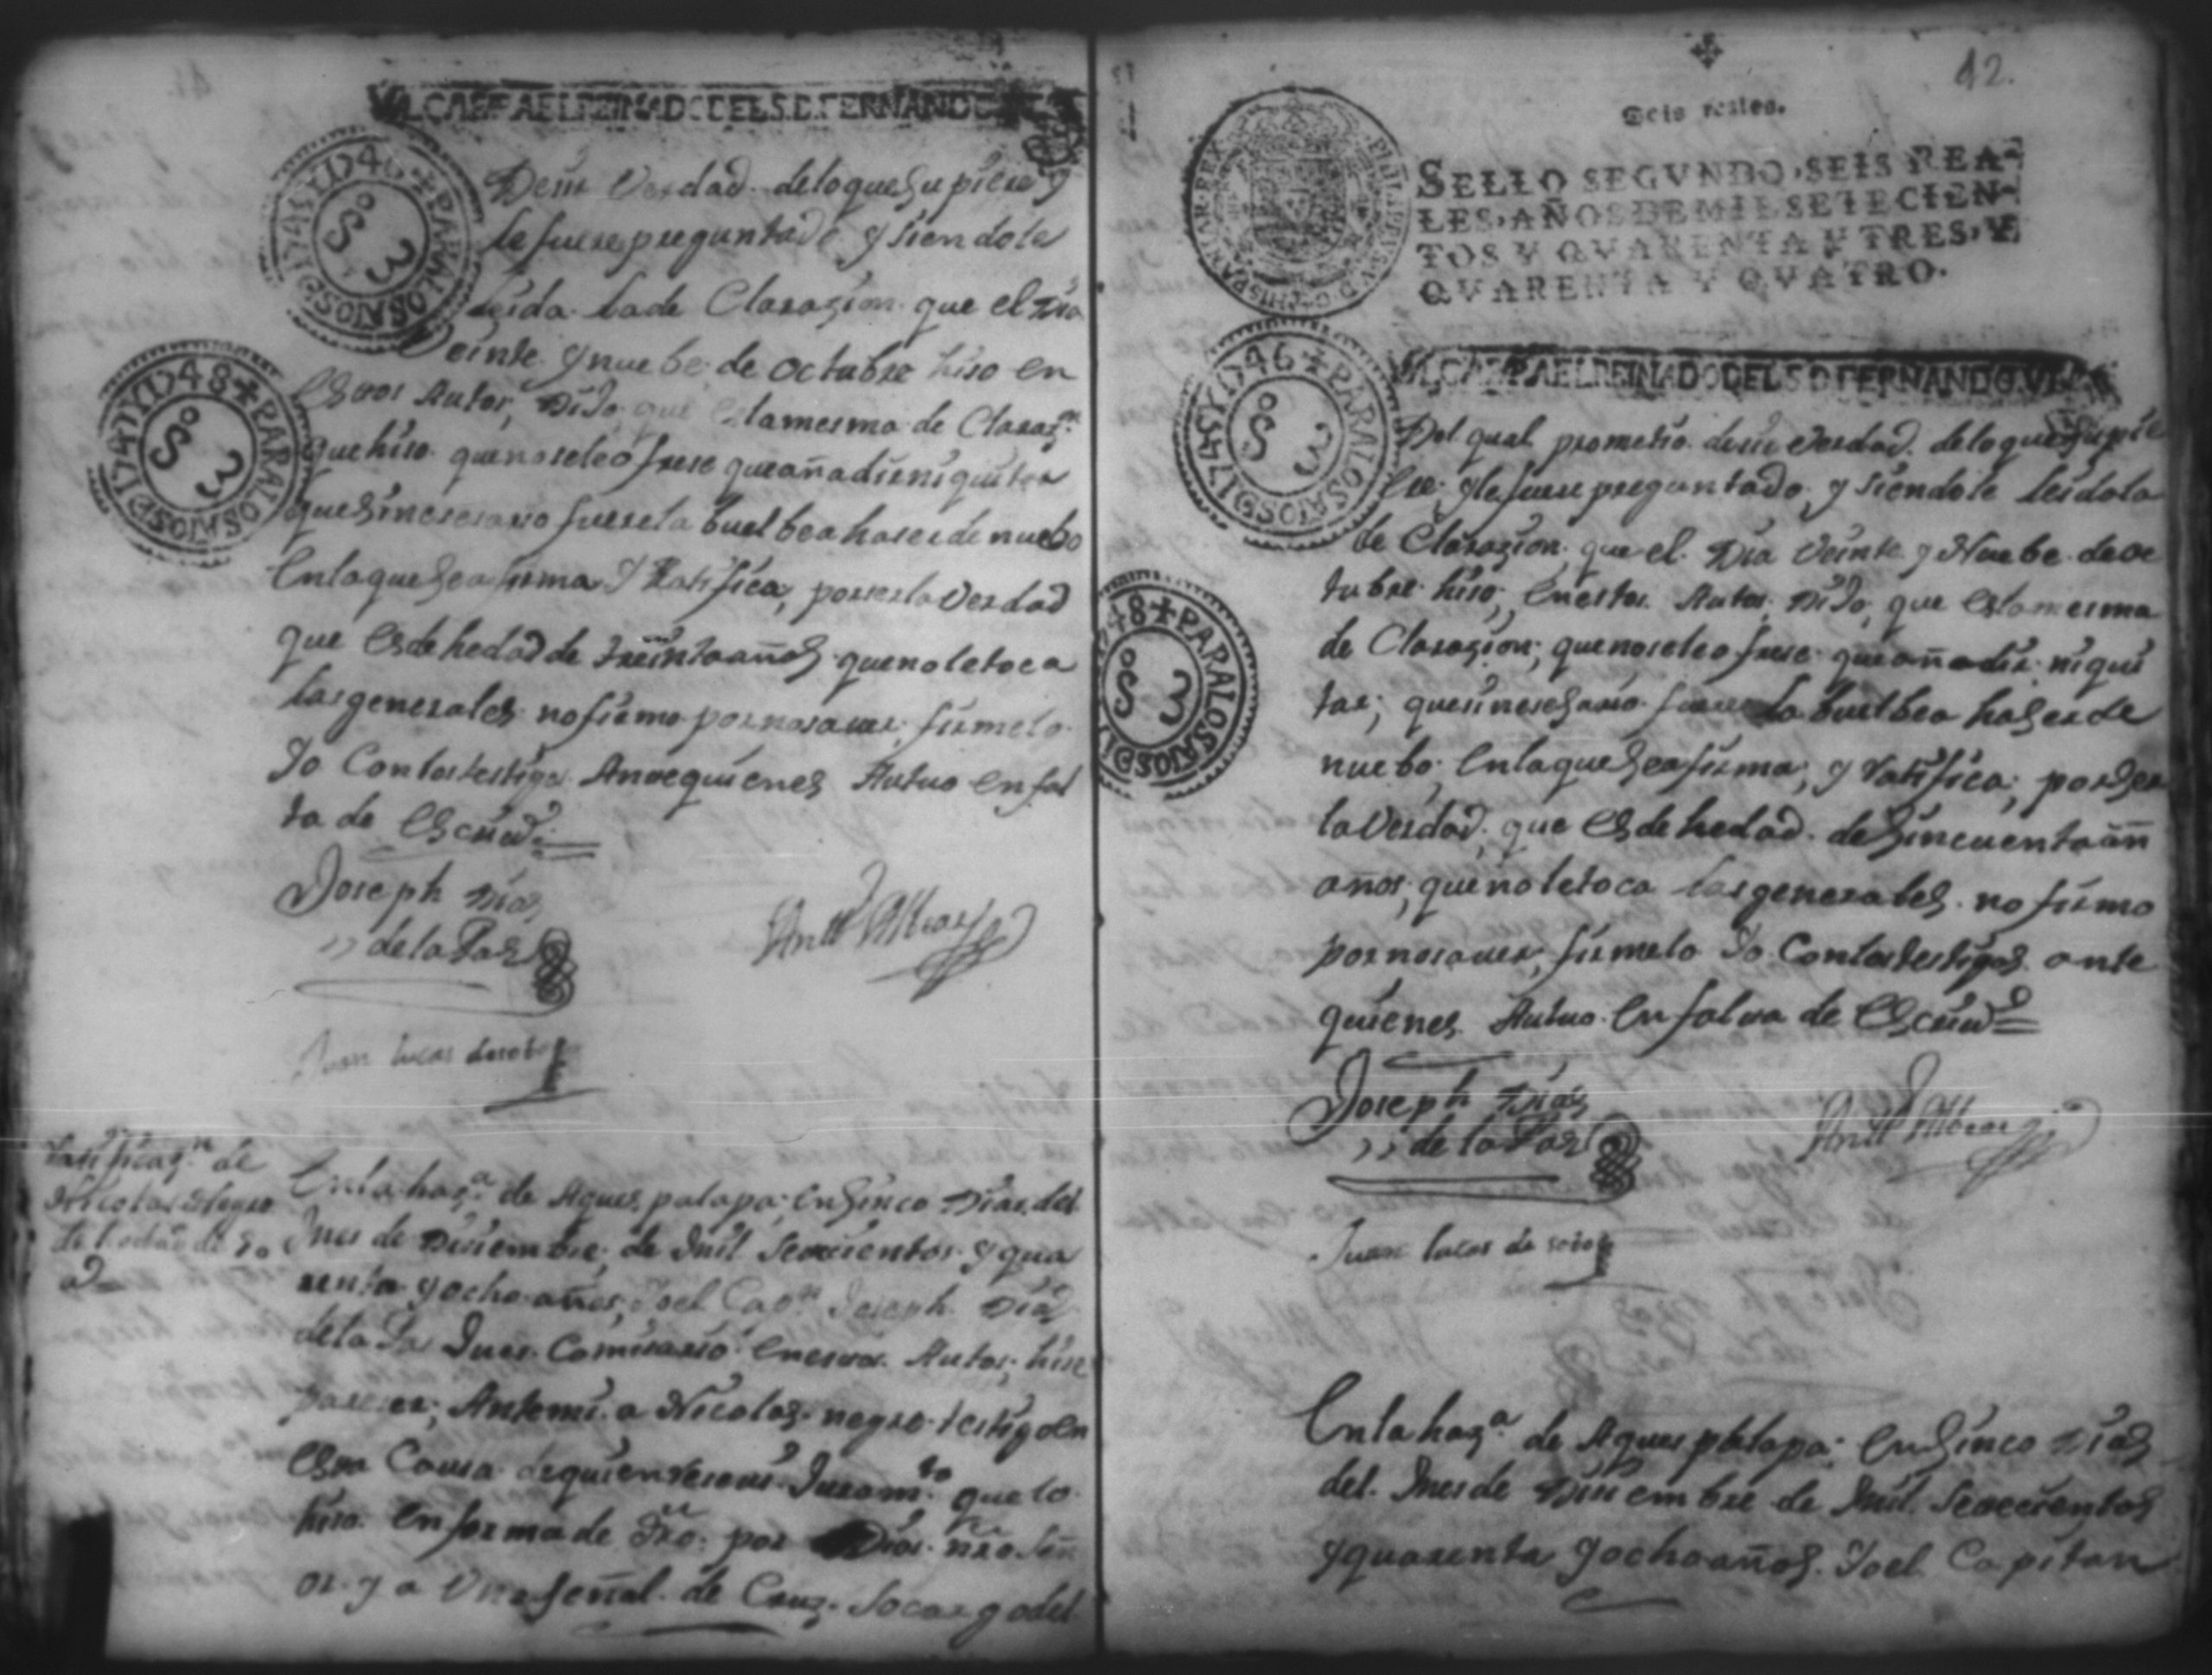 VALGA PA EL REINADO DEL S.D. FERNANDO
1745 Y 1746 PARA LOS AÑOS D
S 3
1747 Y 1748 PARA LOS AÑOS D
S 3
Desir Verdad delo que Supiere y
le fuere preguntado y siendole
leida lade Clarazion que el Dia
veinte y nuebe de octubre hiso en
Estos Autos, Dijo que es lamesma de Claraz.n
que hiso que no sele o frese que añadir ni quitar
que Si nesesario fuere la buelbe a haser de nuebo
En la que Se a firma Y Ratifica, por ser la Verdad
que Es de hedad de treinta años que no le toca
las generales no firmo por no saver firmelo
Yo Con los testigos Ante quienes Autuo en fal
ta de Escriuo
Joseph Dias
de la Paz
Juan lucas de soto
Ratificaz.n de
Nicolas Negro
de hedad de 50
a
En la haz.a de Aguespalapa En Sinco Dias del
mes de Disiembre de Mil Setecientos y qua
renta y ocho años, Yo el Cap.n Joseph Dias
de la Pa Jues Comisario En estos Autos, hise
pareser, Ante mi a Nicolas negro testigo en
Esta Causa de quien reseui Juram.to que lo
hiso En forma de Dro. por Dios nro Señ
or y a Una Señal de Cruz. So cargo del
12.
Seis reales.
SELLO SEGVNDO, SEIS REA-
LES, AÑOS DE MIL SETECIEN-
TOS Y QVARENTA Y TRES, Y
QVARENTA Y QVATRO.
VALGA PA EL REINADO DEL S.D. FERNANDO VI
1745 Y 1746 PARA LOS AÑOS D
S 3
48 PARA LOS AÑOS D 17
S 3
Del qual prometio desir Verdad delo que Supie
re y le fuere preguntado y siendole leida la
de Clarazion que el Dia Veinte y Nuebe de oc
tubre hiso, En estos Autos, Dijo, que Es la mesma
de Clarazion, que no sele o frese que añadir ni qui
tar; que si nesesario fuere la buelbe a haser de
nuebo, En la que Se a firma, y Ratifica, por Ser
la Verdad, que Es de hedad de Sincuenta añ
años, que no le toca las generales no firmo
por no saver, firmelo Yo Con los testigos ante
quienes Autuo En falta de Escriuo
Joseph Dias
de la Paz
Juan lucas de soto
En la haz.a de Aguespalapa En Sinco Dias
del Mes de Disiembre de Mil Setecientos
y quarenta y ocho años. Yo el Capitan